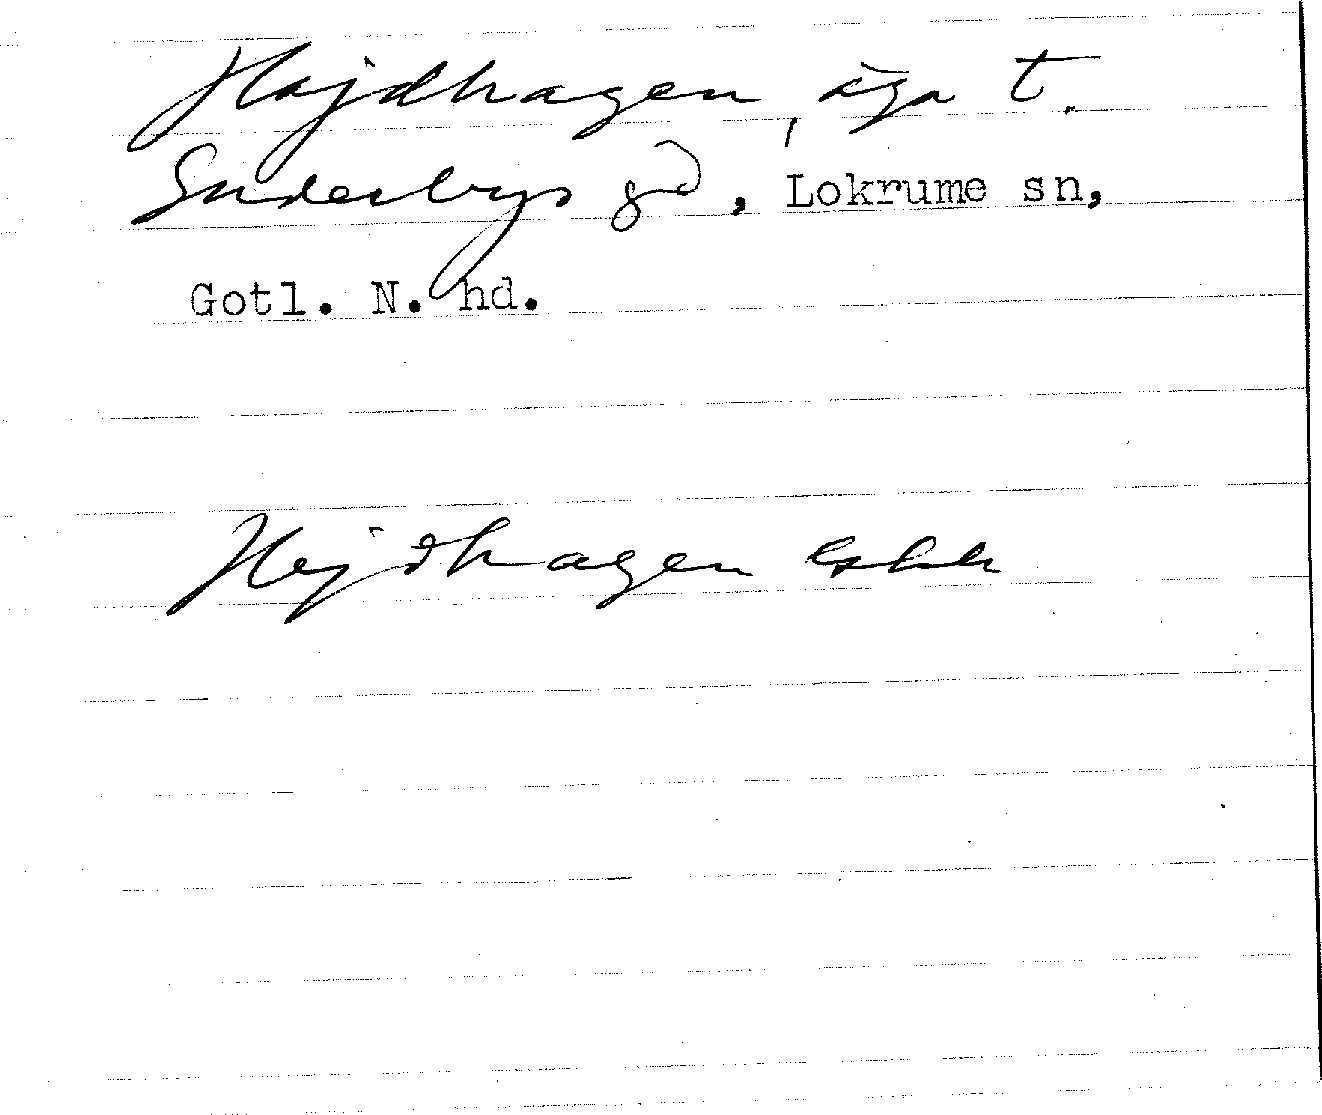 Hajdhagen, äga t.
Suderbys gd, Lokrume sn,
Gotl. N. hd.
Hejdhagen